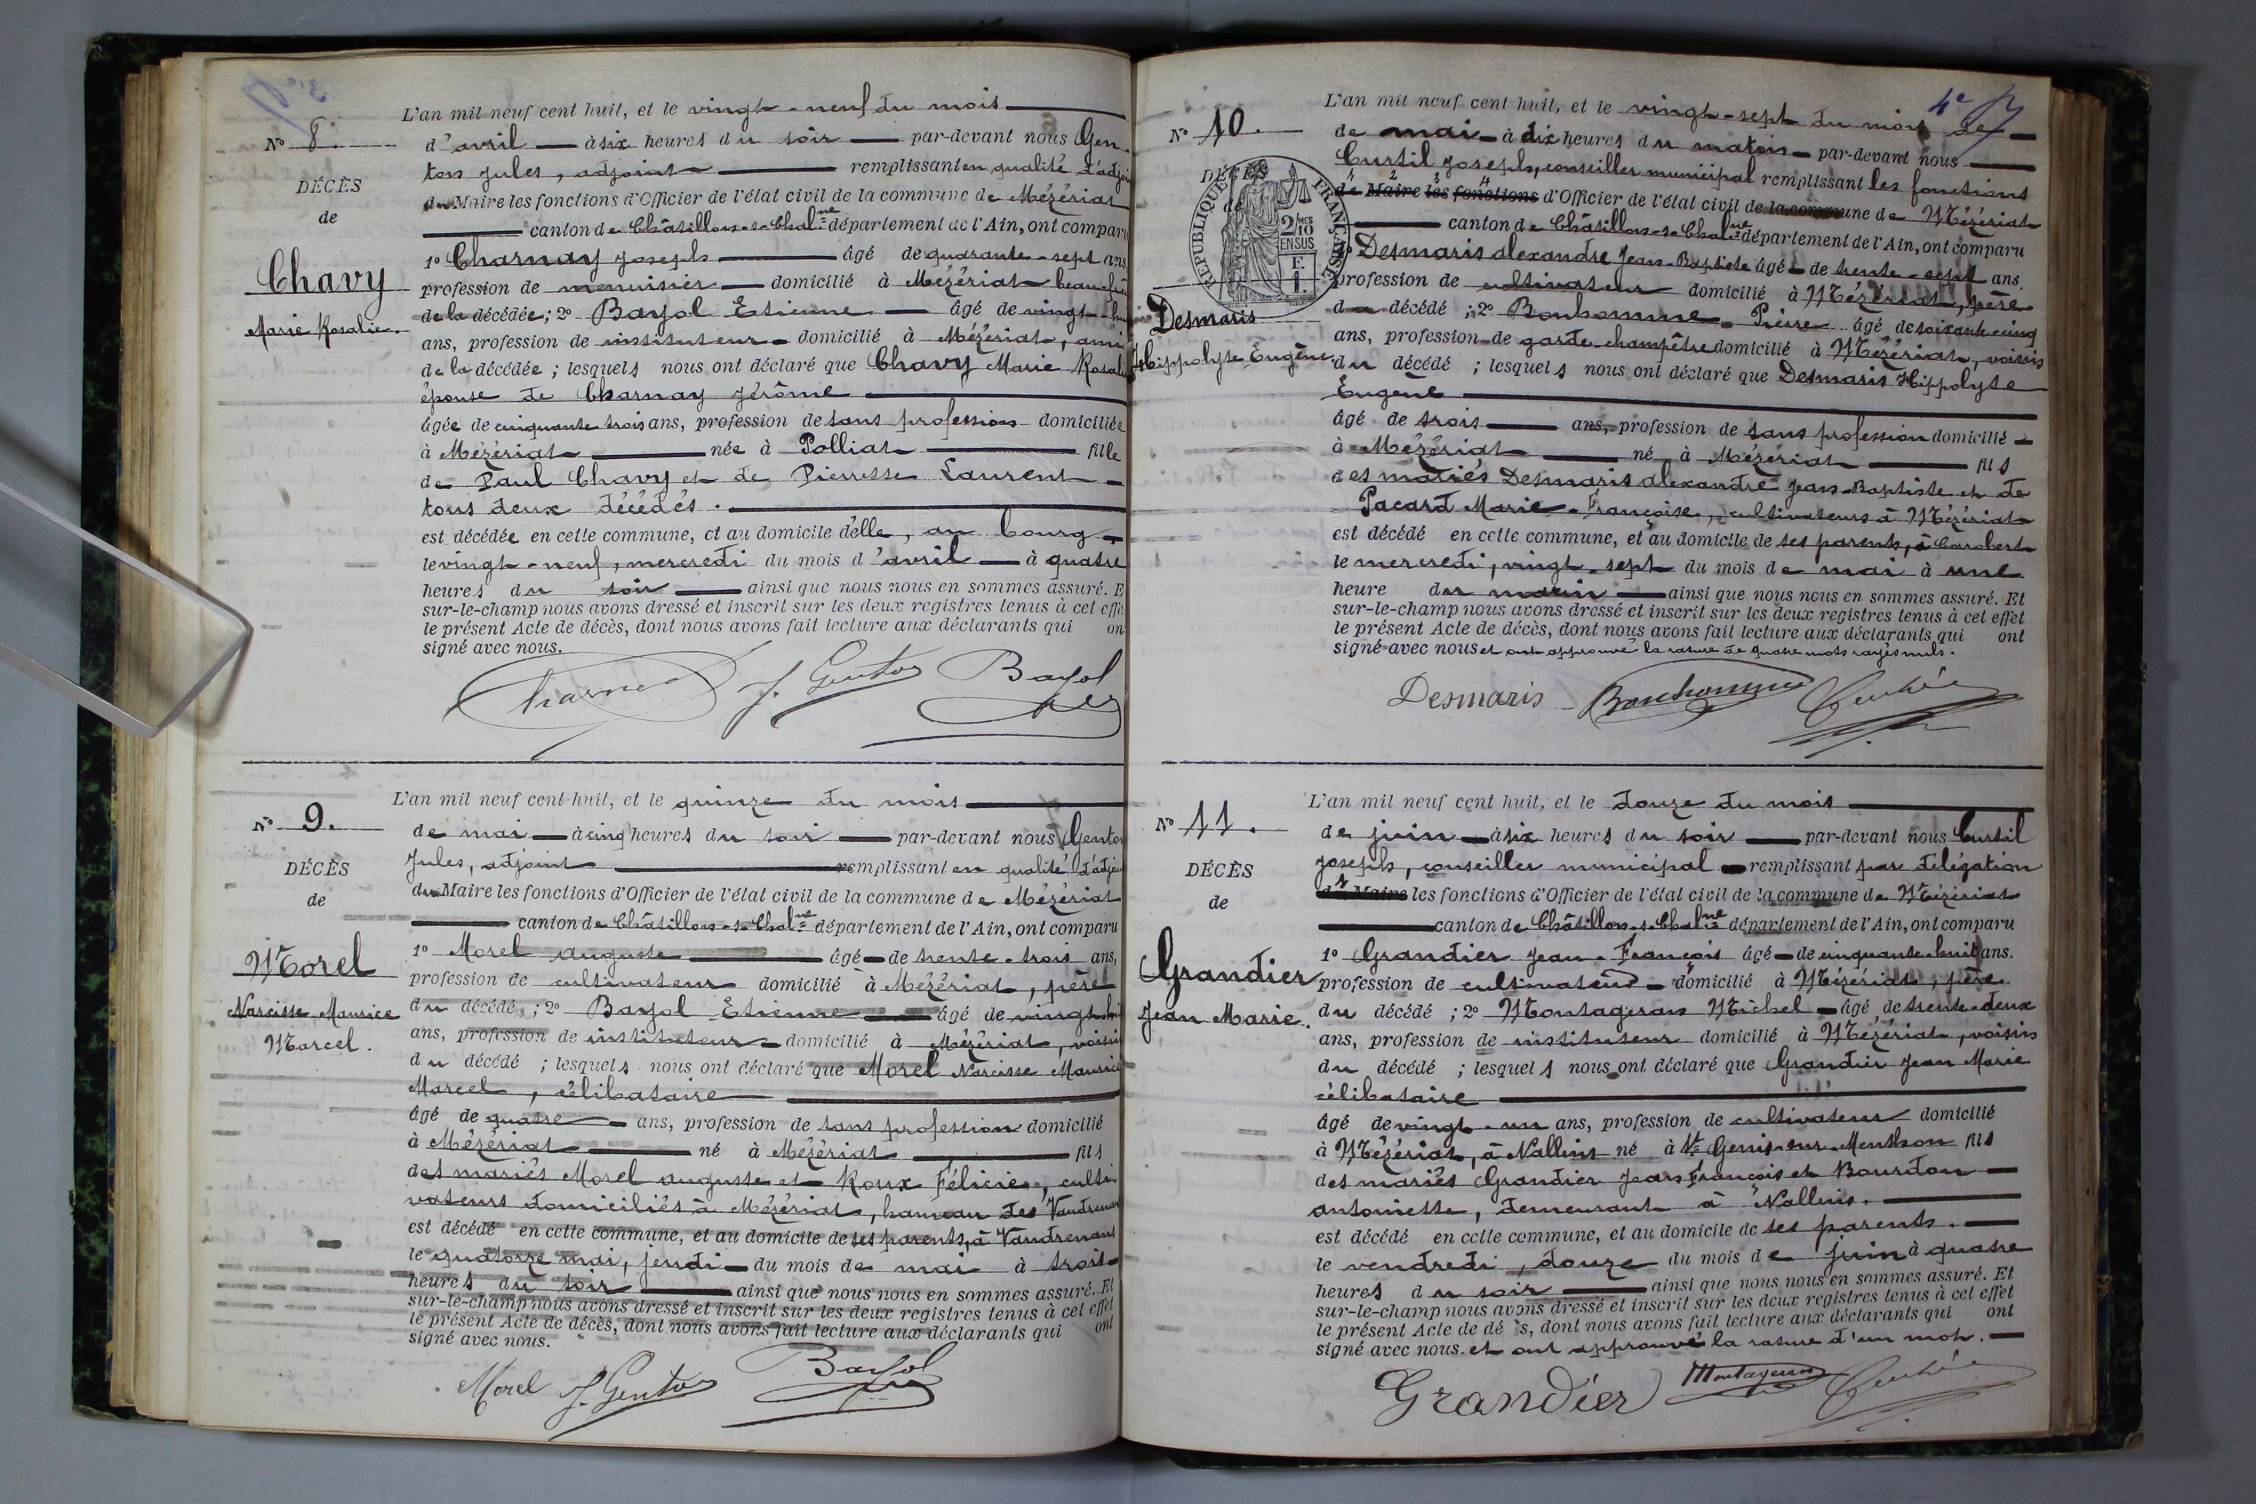 L'an mil neuf cent huit, et le vingt-neuf du mois
N° 8. d'avril à six heures du soir par-devant nous Gen-
ton Jules, adjoint remplissant en qualité d'adjoi
DÉCÈS
du Maire les fonctions d'Officier de l'état civil de la commune de Mézériat
de
canton de Châtillon-s-Chalne département de l'Ain, ont comparu
Chavy
Marie Rosalie.
1° Charnay Joseph âgé de quarante-sept ans,
profession de menuisier domicilié à Mézériat beau-frère
de la décédée; 2° Bayol Etienne âgé de vingt-
ans, profession de instituteur domicilié à Mézériat, ami
de la décédée; lesquels nous ont déclaré que Chavy Marie Rosalie
épouse de Charnay Jérôme
âgée de cinquante trois ans, profession de sans profession domiciliée
à Mézériat née à Polliat fille
de Paul Chavy et de Pierrette Laurent
tous deux décédés.
est décédée en cette commune, et au domicile d'elle, au bourg
le vingt-neuf, mercredi du mois d'avril à quatre
heures du soir ainsi que nous nous en sommes assuré. E
sur-le-champ nous avons dressé et inscrit sur les deux registres tenus à cet effe
le présent Acte de décès, dont nous avons fait lecture aux déclarants qui on
signé avec nous.
Charnay J. Genton Bayol
L'an mil neuf cent huit, et le quinze du mois
N° 9. de mai à cinq heures du soir par-devant nous Genton
Jules, adjoint remplissant en qualité d'adjoi
DÉCÈS
du Maire les fonctions d'Officier de l'état civil de la commune de Mézériat
de
canton de Châtillon-s-Chalne département de l'Ain, ont comparu
Morel
Narcisse Maurice
Marcel.
1° Morel Auguste âgé de trente-trois ans,
profession de cultivateur domicilié à Mézériat, père
du décédé; 2° Bayol Etienne âgé de vingt
ans, profession de instituteur domicilié à Mézériat, voisin
du décédé; lesquels nous ont déclaré que Morel Narcisse Maurice
Marcel, célibataire
âgé de quatre ans, profession de sans profession domicilié
à Mézériat né à Mézériat fils
des mariés Morel Auguste et Roux Félicie, culti-
vateurs domiciliés à Mézériat, hameau des Vaudrenans
est décédé en cette commune, et au domicile de ses parents, à Vaudrenans
le quatorze mai, jeudi du mois de mai à trois
heures du soir ainsi que nous nous en sommes assuré. Et
sur-le-champ nous avons dressé et inscrit sur les deux registres tenus à cet effet
le présent Acte de décès, dont nous avons fait lecture aux déclarants qui ont
signé avec nous.
Morel J. Genton Bayol
4e
L'an mil neuf cent huit, et le vingt-sept du mois de
N° 10. de mai à dix heures du matin par-devant nous
Curtil Joseph, conseiller municipal remplissant les fonctions
DÉCÈS
RÉPUBLIQUE FRANÇAISE
2/10 EN SUS
de Maire les fonctions d'Officier de l'état civil de la commune de Mézériat
canton de Châtillon-s-Chalne département de l'Ain, ont comparu
Desmaris
Hippolyte Eugène.
1° Desmaris Alexandre Jean-Baptiste âgé de trente-sept ans,
profession de cultivateur domicilié à Mézériat, père
du décédé; 2° Bonhomme Pierre âgé de soixante cinq
ans, profession de garde-champêtre domicilié à Mézériat, voisin
du décédé; lesquels nous ont déclaré que Desmaris Hippolyte
Eugène
âgé de trois ans, profession de sans profession domicilié
à Mézériat né à Mézériat fils
des mariés Desmaris Alexandre Jean-Baptiste et de
Pacard Marie-Françoise, cultivateurs à Mézériat
est décédé en cette commune, et au domicile de ses parents, à Carobert
le mercredi, vingt-sept du mois de mai à une
heure du matin ainsi que nous nous en sommes assuré. Et
sur-le-champ nous avons dressé et inscrit sur les deux registres tenus à cet effet
le présent Acte de décès, dont nous avons fait lecture aux déclarants qui ont
signé avec nous et ont approuvé la rature de quatre mots rayés nuls.
Desmaris Bonhomme
L'an mil neuf cent huit, et le douze du mois
N° 11. de juin à six heures du soir par-devant nous Curtil
Joseph, conseiller municipal remplissant par délégation
DÉCÈS
du Maire les fonctions d'Officier de l'état civil de la commune de Mézériat
de
canton de Châtillon-s-Chalne département de l'Ain, ont comparu
Grandier
Jean Marie.
1° Grandier Jean-François âgé de cinquante-huit ans,
profession de cultivateur domicilié à Mézériat, père
du décédé; 2° Montagnan Michel âgé de trente-deux
ans, profession de instituteur domicilié à Mézériat, voisin
du décédé; lesquels nous ont déclaré que Grandier Jean Marie
célibataire
âgé de vingt-un ans, profession de cultivateur domicilié
à Mézériat, à Nallins né à St Genis-sur-Menthon fils
des mariés Grandier Jean François et Bourdon
Antoinette, demeurant à Nallins.
est décédé en cette commune, et au domicile de ses parents.
le vendredi, douze du mois de juin à quatre
heures du soir ainsi que nous nous en sommes assuré. Et
sur-le-champ nous avons dressé et inscrit sur les deux registres tenus à cet effet
le présent Acte de décès, dont nous avons fait lecture aux déclarants qui ont
signé avec nous. et ont approuvé la rature d'un mot.
Grandier